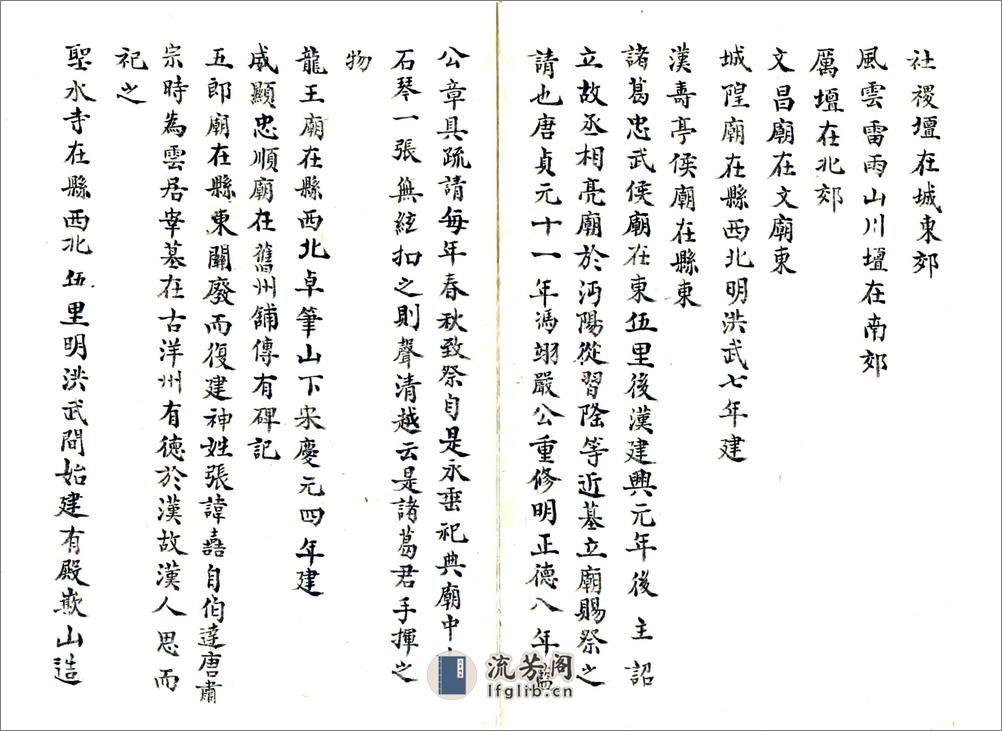 社稷壇在城東郊
風雲雷雨山川壇在南郊
厲壇在北郊
文昌廟在文廟東
城隍廟在縣西北明洪武七年建
漢壽亭侯廟在縣東
諸葛忠武侯廟在東伍里後漢建興元年後主詔
立故丞相亮廟於沔陽從習隆等近墓立廟賜祭之
請也唐貞元十一年馮翊嚴公重修明正德八年藍
公章具疏請每年春秋致祭自是永垂祀典廟中
石琴一張無絃扣之則聲清越云是諸葛君手揮之
物
龍王廟在縣西北卓筆山下宋慶元四年建
威顯忠順廟在舊州舖傳有碑記
五郎廟在縣東關廢而復建神姓張諱嚞自伯達唐肅
宗時為雲居宰墓在古洋州有德於漢故漢人思而
祀之
聖水寺在縣西北伍里明洪武間始建有殿欺山造
流芳阁
lfglib.cn